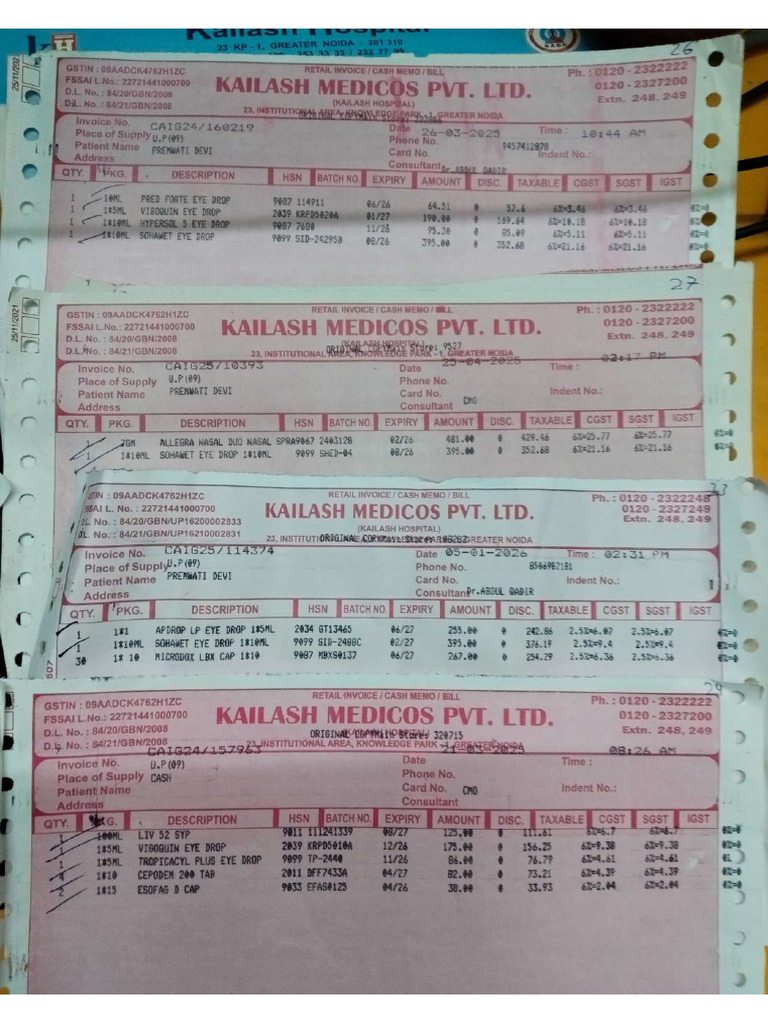 Kailash Hospital
23 KP - 1, GREATER NOIDA - 201 310
26
25/11/2021
GSTIN : 09AADCK4762H1ZC
RETAIL INVOICE / CASH MEMO / BILL
Ph. : 0120 - 2322222
FSSAI L.No. : 22721441000700
KAILASH MEDICOS PVT. LTD.
0120 - 2327200
D.L. No. : 84/20/GBN/2008
(KAILASH HOSPITAL)
Extn. 248, 249
D.L. No. : 84/21/GBN/2008
23, INSTITUTIONAL AREA, KNOWLEDGE PARK - 1, GREATER NOIDA
Invoice No. CAIG24/160219 Date 26-03-2025 Time : 10:44 AM
Place of Supply U.P(09) Phone No. 9457412878
Patient Name PREMWATI DEVI Card No. Indent No.:
Address Consultant Dr.ABDUL QADIR
QTY. PKG. DESCRIPTION HSN BATCH NO. EXPIRY AMOUNT DISC. TAXABLE CGST SGST IGST
1 10ML PRED FORTE EYE DROP 9087 114911 06/26 64.51 0 57.6 6%=3.46 6%=3.46 0%=0
1 1*5ML VIGOQUIN EYE DROP 2039 KRPD5020A 01/27 190.00 0 169.64 6%=10.18 6%=10.18 0%=0
1 1*10ML HYPERSOL 5 EYE DROP 9087 7680 11/26 95.30 0 85.09 6%=5.11 6%=5.11 0%=0
1 1*10ML SOHAWET EYE DROP 9099 SID-24295B 08/26 395.00 0 352.68 6%=21.16 6%=21.16 0%=0
27
25/11/2021
GSTIN : 09AADCK4762H1ZC
RETAIL INVOICE / CASH MEMO / BILL
Ph. : 0120 - 2322222
FSSAI L.No.: 22721441000700
KAILASH MEDICOS PVT. LTD.
0120 - 2327200
D.L. No. : 84/20/GBN/2008
(KAILASH HOSPITAL)
Extn. 248, 249
D.L. No. : 84/21/GBN/2008
ORIGINAL COPY Main Store: 9527
23, INSTITUTIONAL AREA, KNOWLEDGE PARK - 1, GREATER NOIDA
Invoice No. CAIG25/10393 Date 25-04-2025 Time : 02:17 PM
Place of Supply U.P(09) Phone No.
Patient Name PREMWATI DEVI Card No. Indent No.:
Address Consultant CMO
QTY. PKG. DESCRIPTION HSN BATCH NO. EXPIRY AMOUNT DISC. TAXABLE CGST SGST IGST
1 7GM ALLEGRA NASAL DUO NASAL SPRA 9067 2403128 02/26 481.00 0 429.46 6%=25.77 6%=25.77 0%=0
1 1*10ML SOHAWET EYE DROP 1*10ML 9099 SHED-04 08/26 395.00 0 352.68 6%=21.16 6%=21.16 0%=0
GSTIN : 09AADCK4762H1ZC
RETAIL INVOICE / CASH MEMO / BILL
Ph. : 0120 - 2322248
FSSAI L.No. : 22721441000700
KAILASH MEDICOS PVT. LTD.
0120 - 2327249
D.L. No. : 84/20/GBN/UP16200002833
(KAILASH HOSPITAL)
Extn. 248, 249
D.L. No. : 84/21/GBN/UP16210002831
23, INSTITUTIONAL AREA, KNOWLEDGE PARK - 1, GREATER NOIDA
Invoice No. CAIG25/114374 Date 05-01-2026 Time : 02:31 PM
Place of Supply U.P(09) Phone No. 8506982181
Patient Name PREMWATI DEVI Card No. Indent No.:
Address Consultant Dr.ABDUL QADIR
QTY. PKG. DESCRIPTION HSN BATCH NO. EXPIRY AMOUNT DISC. TAXABLE CGST SGST IGST
1 1*1 APDROP LP EYE DROP 1*5ML 2034 GT13465 06/27 255.00 0 242.86 2.5%=6.07 2.5%=6.07 0%=0
1 1*10ML SOHAWET EYE DROP 1*10ML 9099 SID-248BC 02/27 395.00 0 376.19 2.5%=9.4 2.5%=9.4 0%=0
30 1* 10 MICRODOX LBX CAP 1*10 9087 MBXS0137 06/27 267.00 0 254.29 2.5%=6.36 2.5%=6.36 0%=0
GSTIN : 09AADCK4762H1ZC
RETAIL INVOICE / CASH MEMO / BILL
Ph. : 0120 - 2322222
FSSAI L.No. : 22721441000700
KAILASH MEDICOS PVT. LTD.
0120 - 2327200
D.L. No. : 84/20/GBN/2008
(KAILASH HOSPITAL)
Extn. 248, 249
D.L. No. : 84/21/GBN/2008
ORIGINAL COPY Main Store: 320715
23, INSTITUTIONAL AREA, KNOWLEDGE PARK - 1, GREATER NOIDA
CAIG24/157963 21-03-2025 08:26 AM
Invoice No. U.P(09) Date Time :
Place of Supply CASH Phone No.
Patient Name Card No. CMO Indent No.:
Address Consultant
QTY. PKG. DESCRIPTION HSN BATCH NO. EXPIRY AMOUNT DISC. TAXABLE CGST SGST IGST
1 100ML LIV 52 SYP 9011 111241339 08/27 125.00 0 111.61 6%=6.7 6%=6.7 0%=0
1 1*5ML VIGOQUIN EYE DROP 2039 KRPD5010A 12/26 175.00 0 156.25 6%=9.38 6%=9.38 0%=0
1 1*5ML TROPICACYL PLUS EYE DROP 9099 TP-2440 11/26 86.00 0 76.79 6%=4.61 6%=4.61
1*10 CEPODEM 200 TAB 2011 DFF7433A 04/27 82.00 0 73.21 6%=4.39 6%=4.39 0%=0
2 1*15 ESOFAG D CAP 9033 EFAS0125 04/26 38.00 0 33.93 6%=2.04 6%=2.04 0%=0